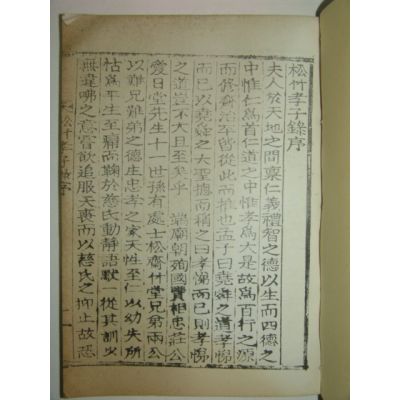 松竹孝子錄序
夫人於天地之間稟仁義禮智之德以生而四德之
中惟仁爲首仁道之中惟孝爲大是故爲百行之源
而修齊治平皆從此而推也孟子曰堯舜之道孝悌
而已以堯舜之大聖揔而稱之曰孝悌而已則孝悌
之道豈不大且至矣乎 端廟朝殉國贊相忠莊公
愛日堂先生十一世孫有處士松齋竹堂兄弟兩公
以難兄難弟出忠孝之家天性至仁以幼失所
怙爲平生至痛而鞠於慈氏動靜語默一從其訓少
無違咈之意嘗欲追服天喪而以慈氏之抑止故恐
松竹孝子錄序